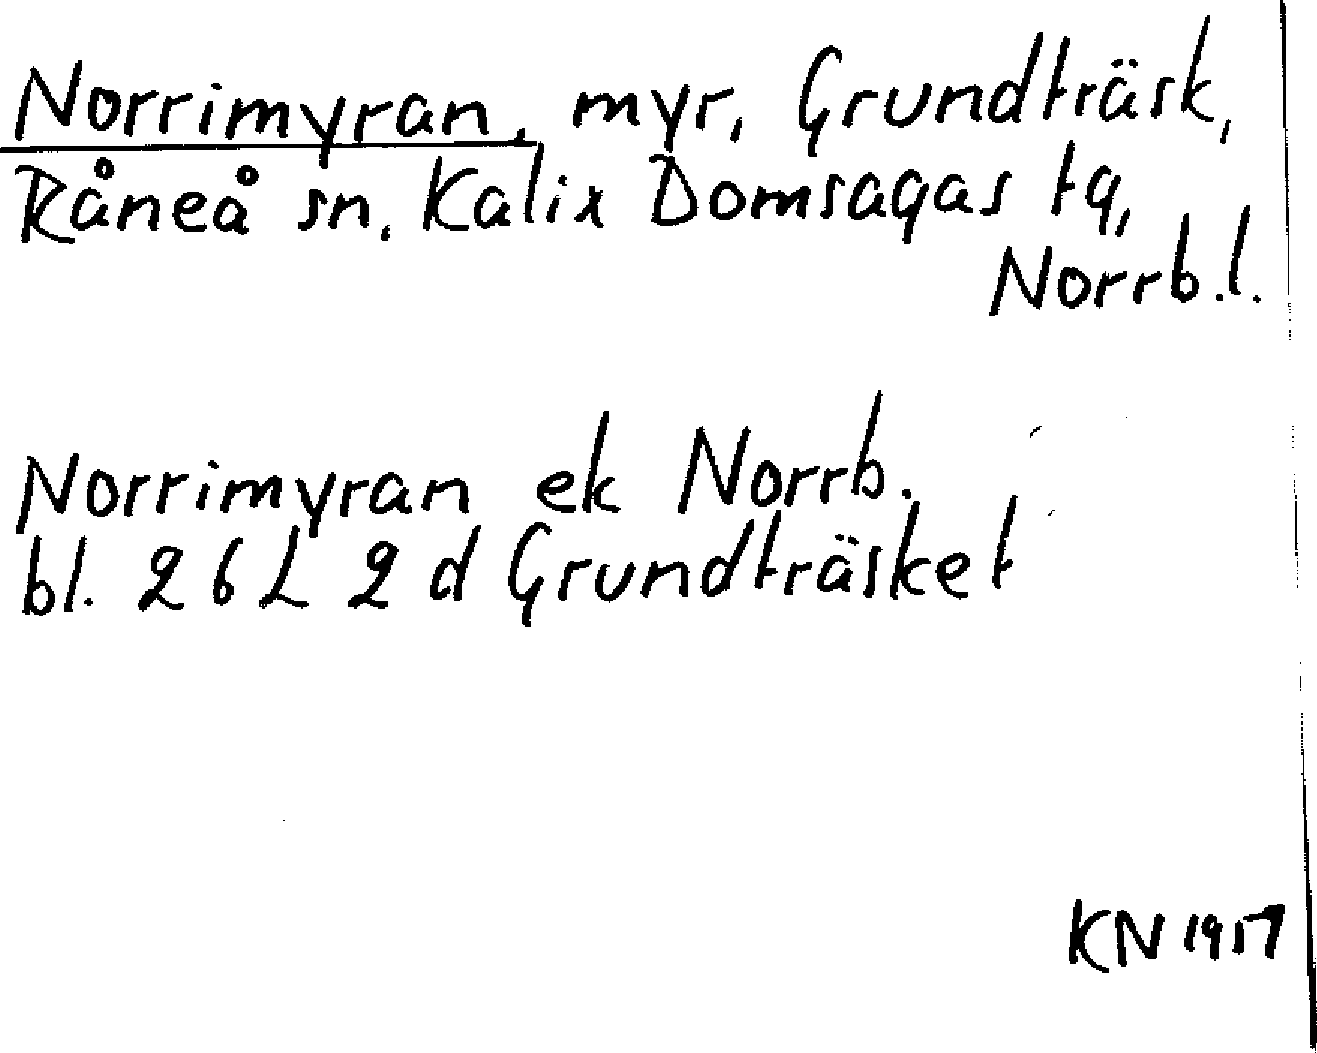 Norrimyran, myr, Grundträsk,
Råneå sn, Kalix Domsagas tg,
Norrb.l.
Norrimyran ek Norrb.
bl. 26L 2d Grundträsket
KN